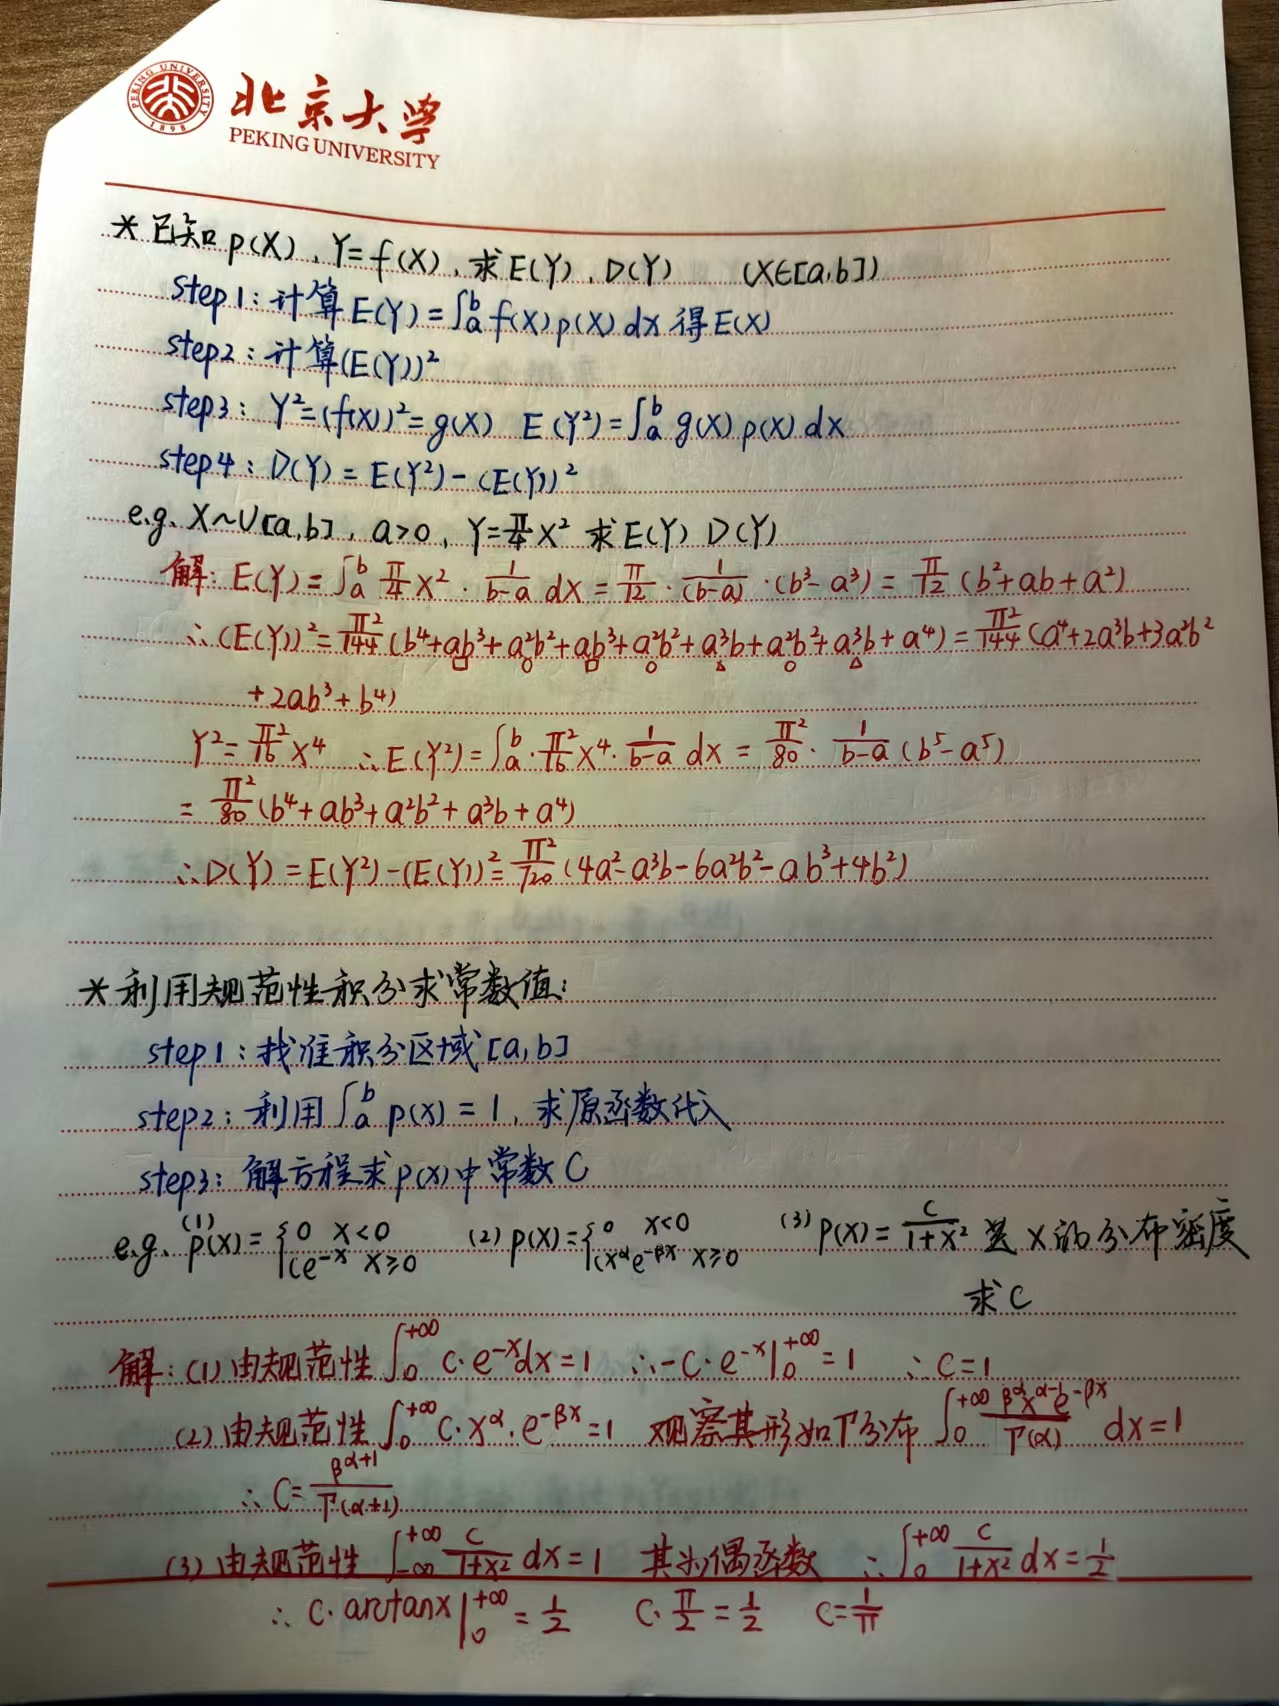 PEKING UNIVERSITY
1898
北京大学
PEKING UNIVERSITY
* 已知 p(X), Y=f(X), 求E(Y), D(Y) (X∈[a,b])
step1: 计算E(Y)=∫ₐᵇ f(X)p(X)dx 得E(X)
step2: 计算(E(Y))²
step3: Y²=(f(X))²=g(X) E(Y²)=∫ₐᵇ g(X)p(X)dx
step4: D(Y)=E(Y²)-(E(Y))²
e.g. X~U[a,b], a>0, Y=π/4 X² 求E(Y) D(Y)
解: E(Y)=∫ₐᵇ π/4 X²·1/(b-a) dX = π/12·1/(b-a)·(b³-a³) = π/12 (b²+ab+a²)
∴(E(Y))²=π²/144 (b⁴+ab³+a²b²+ab³+a²b²+a³b+a²b²+a³b+a⁴)=π²/144 (a⁴+2a³b+3a²b²
+2ab³+b⁴)
Y²=π²/16 X⁴ ∴E(Y²)=∫ₐᵇ·π²/16 X⁴·1/(b-a) dX = π²/80·1/(b-a) (b⁵-a⁵)
= π²/80 (b⁴+ab³+a²b²+a³b+a⁴)
∴D(Y)=E(Y²)-(E(Y))²=π²/720 (4a²-a³b-6a²b²-ab³+4b²)
* 利用规范性积分求常数值:
step1: 找准积分区域[a,b]
step2: 利用∫ₐᵇ p(X)=1, 求原函数代入
step3: 解方程求p(X)中常数C
e.g. (1) p(X)={0 X<0; Ce^(-x) X≥0 (2) p(X)={0 X<0; CX^α e^(-βX) X≥0 (3) p(X)=C/(1+X²) 是X的分布密度
求C
解: (1)由规范性∫₀^(+∞) C·e^(-x)dx=1 ∴-C·e^(-x)|₀^(+∞)=1 ∴C=1
(2)由规范性∫₀^(+∞) C·X^α·e^(-βX)=1 观察其形如Γ分布 ∫₀^(+∞) β^α X^(α-1) e^(-βX)/Γ(α) dX=1
∴C=β^(α+1)/Γ(α+1)
(3)由规范性 ∫_(-∞)^(+∞) C/(1+X²) dX=1 其为偶函数 ∴∫₀^(+∞) C/(1+X²) dX=1/2
∴C·arctanX|₀^(+∞)=1/2 C·π/2=1/2 C=1/π